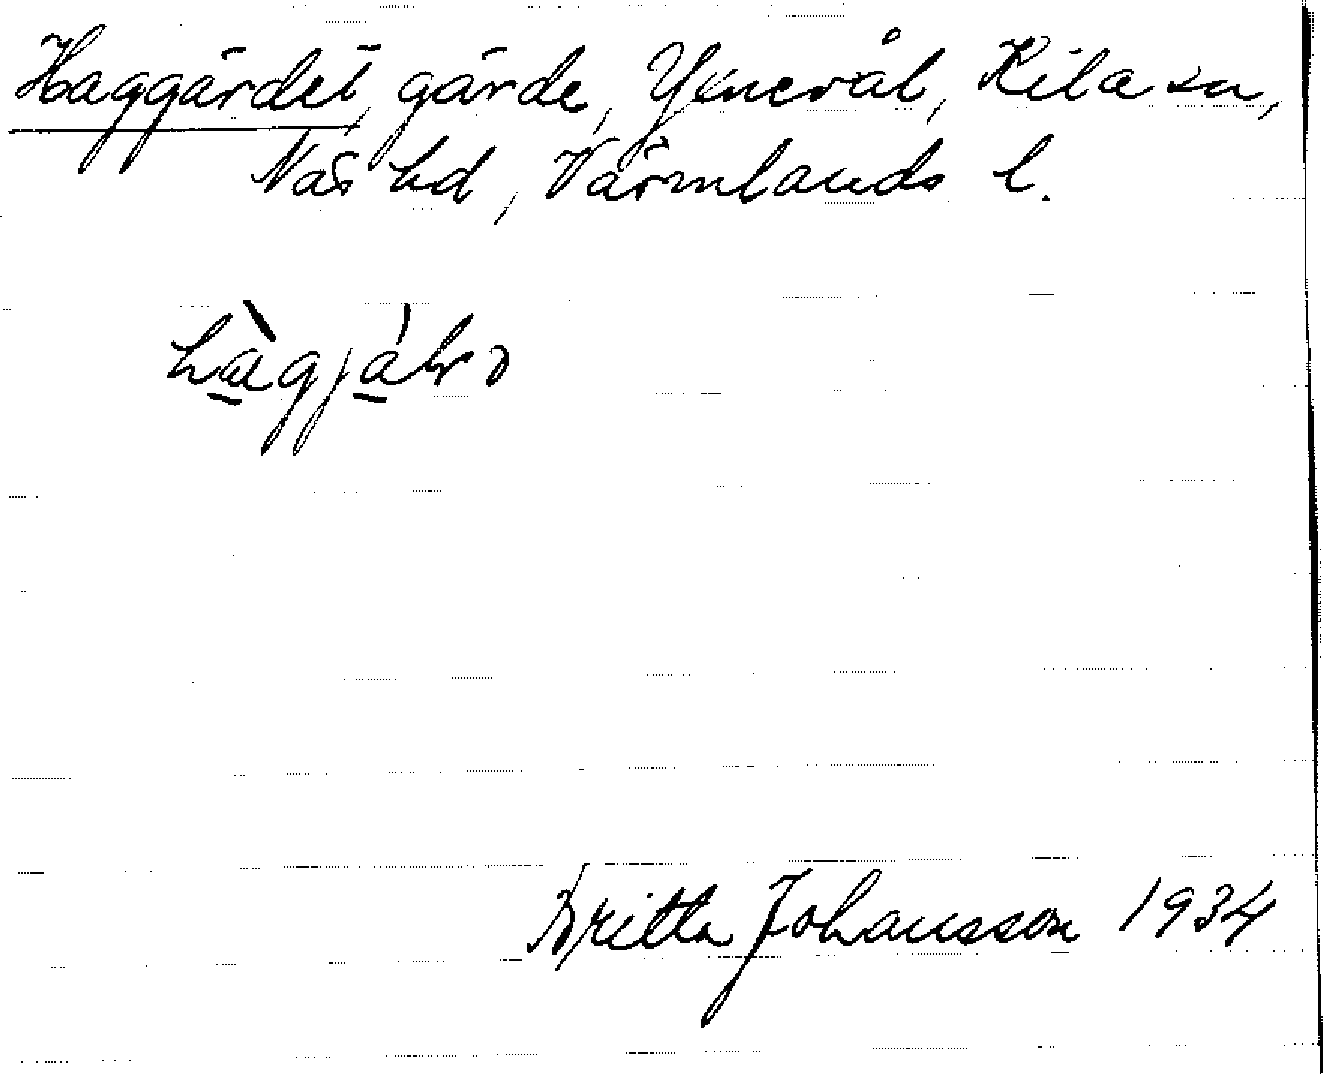 Haggärdet, gärde, Generål, Kila sn,
Näs hd, Värmlands l.
Britta Johansson 1934